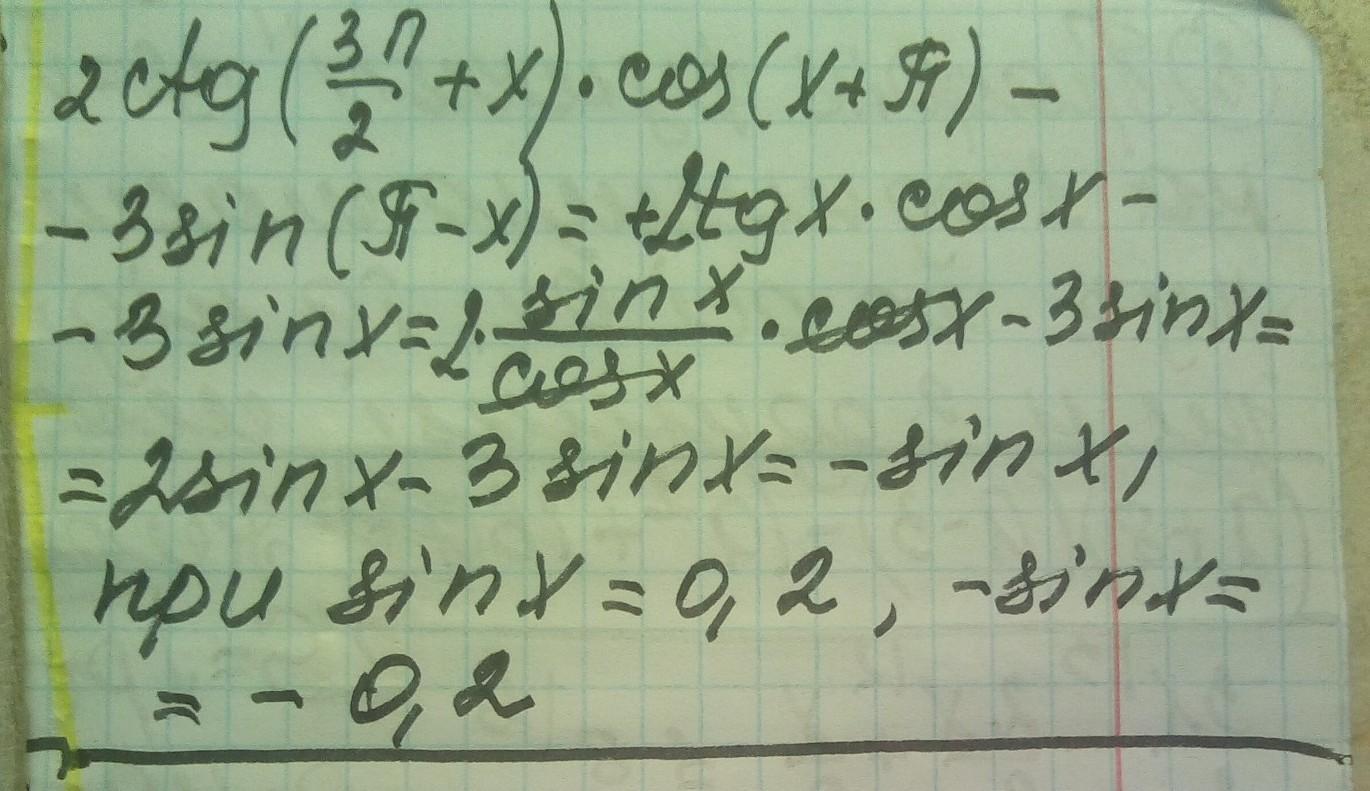 2 ctg(3π/2 + x) · cos(x + π) -
- 3 sin(π - x) = +2tg x · cos x -
- 3 sin x = 2 · sin x / cos x · cos x - 3 sin x =
= 2 sin x - 3 sin x = - sin x,
при sin x = 0,2, - sin x =
= - 0,2